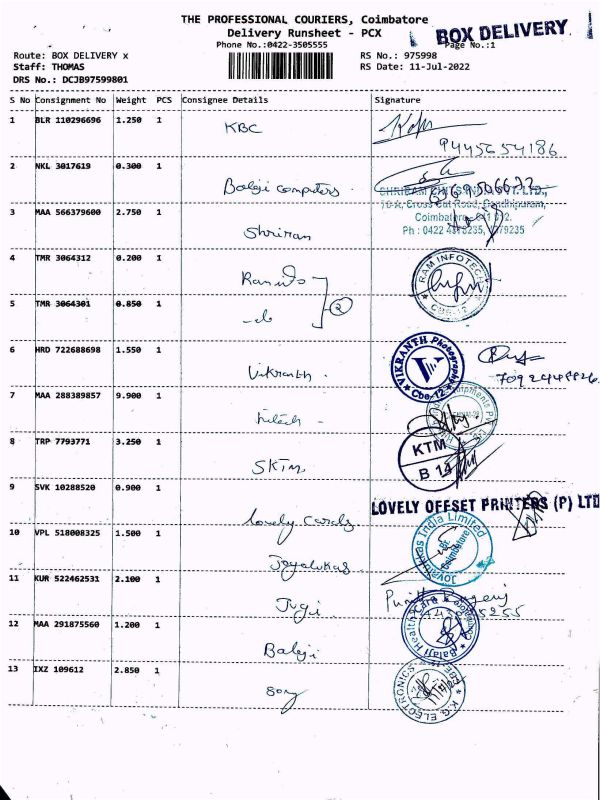 THE PROFESSIONAL COURIERS, Coimbatore
Delivery Runsheet - PCX
Phone No.:0422-3505555
BOX DELIVERY
Page No.:1
Route: BOX DELIVERY x
RS No.: 975998
Staff: THOMAS
RS Date: 11-Jul-2022
DRS No.: DCJB97599801
S No Consignment No Weight PCS Consignee Details Signature
1 BLR 110296696 1.250 1 KBC
9445654186
2 NKL 3017619 0.300 1 Balaji computers
SHRIRAM CHITS INDIA PVT. LTD.,
Cross Cut Road, Gandhipuram,
3 MAA 566379600 2.750 1 Shriram
Coimbatore-641 012.
Ph : 0422
4 TMR 3064312 0.200 1
RAM INFOTECH
CBE-12
5 TMR 3064301 0.850 1 -do 2
6 HRD 722688698 1.550 1 Vikranth
VIKRANTH Photography
Cbe-12
7 MAA 288389857 9.900 1
8 TRP 7793771 3.250 1
KTM
B 19
9 SVK 10288520 0.900 1 lovely Cards
LOVELY OFFSET PRINTERS (P) LTD
10 VPL 518008325 1.500 1 Joyalukas
Joyalukkas India Limited
Coimbatore
11 KUR 522462531 2.100 1 Jugi
12 MAA 291875560 1.200 1 Balaji
Balaji Health Care
13 IXZ 109612 2.850 1 Sony
K.G. ELECTRONICS